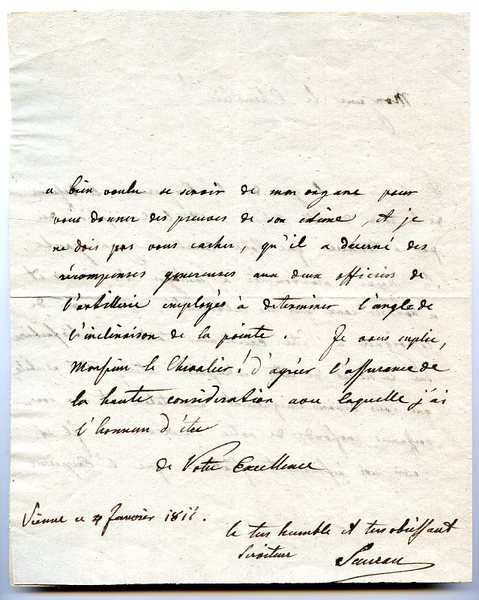 a bien voulu se servir de mon organe pour
vous donner des preuves de son estime, et je
ne dois pas vous cacher, qu'il a décerné des
récompenses genereuses aux deux officiers de
l'artillerie employés à determiner l'angle de
l'inclinaison de la pointe. Je vous suplie,
Monsieur le Chevalier! d'agréer l'assurance de
la haute consideration avec laquelle j'ai
l'honneur d'être
de Votre Excellence
Vienne ce Janvier
le tres humble et tres obéissant
Serviteur Saurau